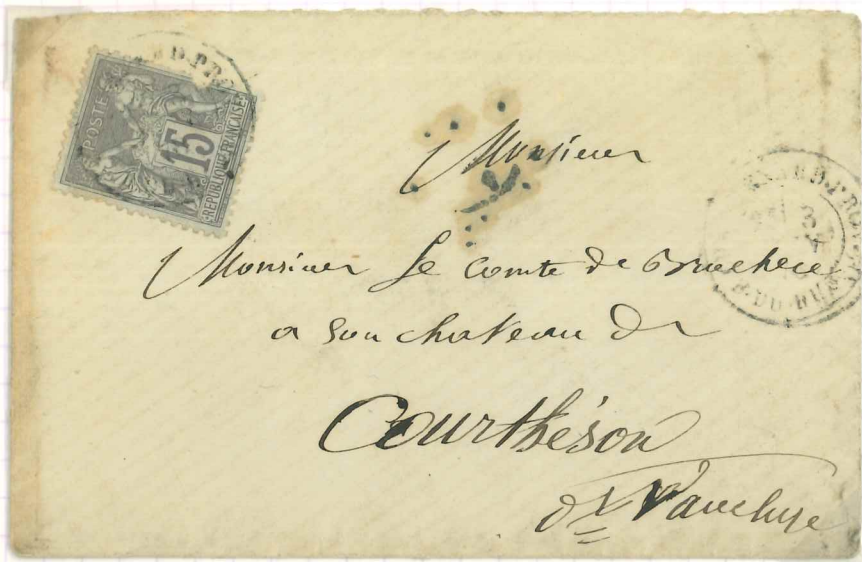 POSTE
15
REPUBLIQUE FRANÇAISE
D.PRO
Monsieur
Monsieur Le Comte de
a son chateau de
Courthéson
Dt Vaucluse